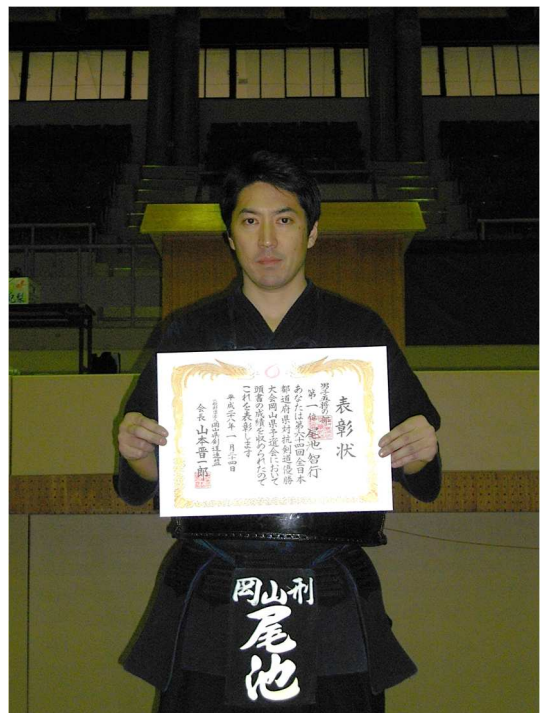 表彰状
男子五将の部
第一位 尾池智行
あなたは第六十四回全日本
都道府県対抗剣道優勝
大会岡山県予選会において
頭書の成績を収められたので
これを表彰します
平成二十八年一月二十四日
岡山県剣道連盟
会長 山本晋一郎
岡山刑
尾池